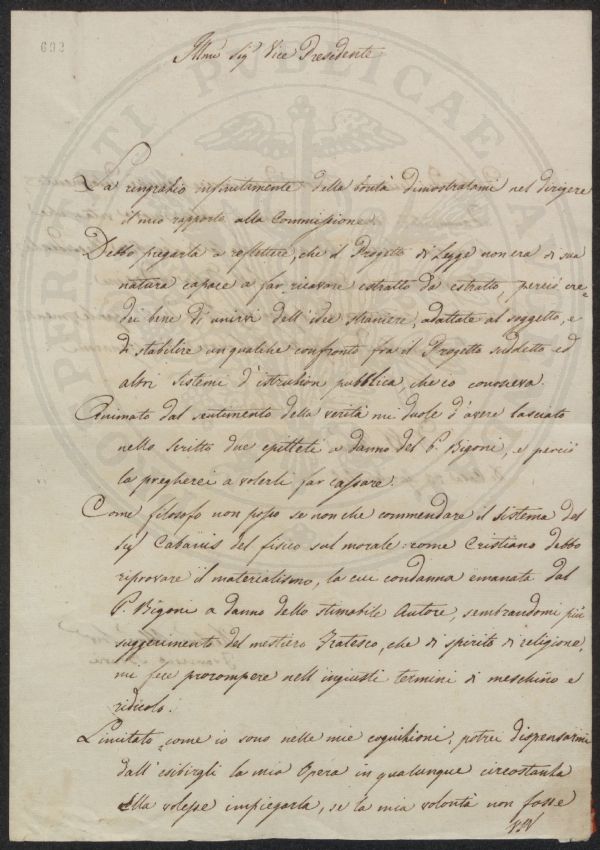 692
Illmo Sigr Vice Presidente
La ringrazio infinitamente della bontà dimostratami nel dirigere
il mio rapporto alla Commissione.
Debbo pregarla a riflettere, che il Progetto di Legge non era di sua
natura capace a far ricavare estratto da estratto, perciò cre-
dei bene di unirvi dell'idee straniere, adattate al soggetto, e
di stabilire un qualche confronto fra il Progetto suddetto ed
altri sistemi d'istruzion pubblica, che io conosceva.
Animato dal sentimento della verità mi duole d'avere lasciato
nello scritto due epitteti a danno del P. Bigoni, e perciò
la pregherei a volerli far cassare.
Come filosofo non posso se non che commendare il sistema del
Sigr Cabanis del fisico sul morale: come Cristiano debbo
riprovare il materialismo, la cui condanna emanata dal
P. Bigoni a danno dello stimabile Autore, sembrandomi più
suggerimento del mestiero Fratesco, che di spirito di religione,
mi fece prorompere nell'ingiusti termini di meschino e
ridicolo.
Limitato come io sono nelle mie cognizioni, potrei dispensarmi
dall'esibirgli la mia Opera in qualunque circostanza
Ella volesse impiegarla, se la mia volontà non fosse
PROPRIETATI PUBLICAE